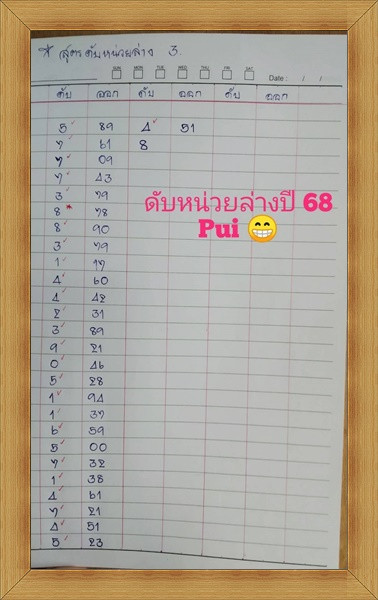 * สูตรดับหน่วยล่าง 3
SUN MON TUE WED THU FRI SAT
Date : / /
ดับ ออก ดับ ออก ดับ ออก
5 89 4 51
7 61 8
7 09
7 43
3 79
8 * 78
8 90
3 79
1 17
4 60
4 42
2 31
3 89
9 21
0 46
5 28
1 94
1 37
6 59
5 00
7 32
1 38
4 61
7 21
4 51
5 23
ดับหน่วยล่างปี 68
Pui 😁